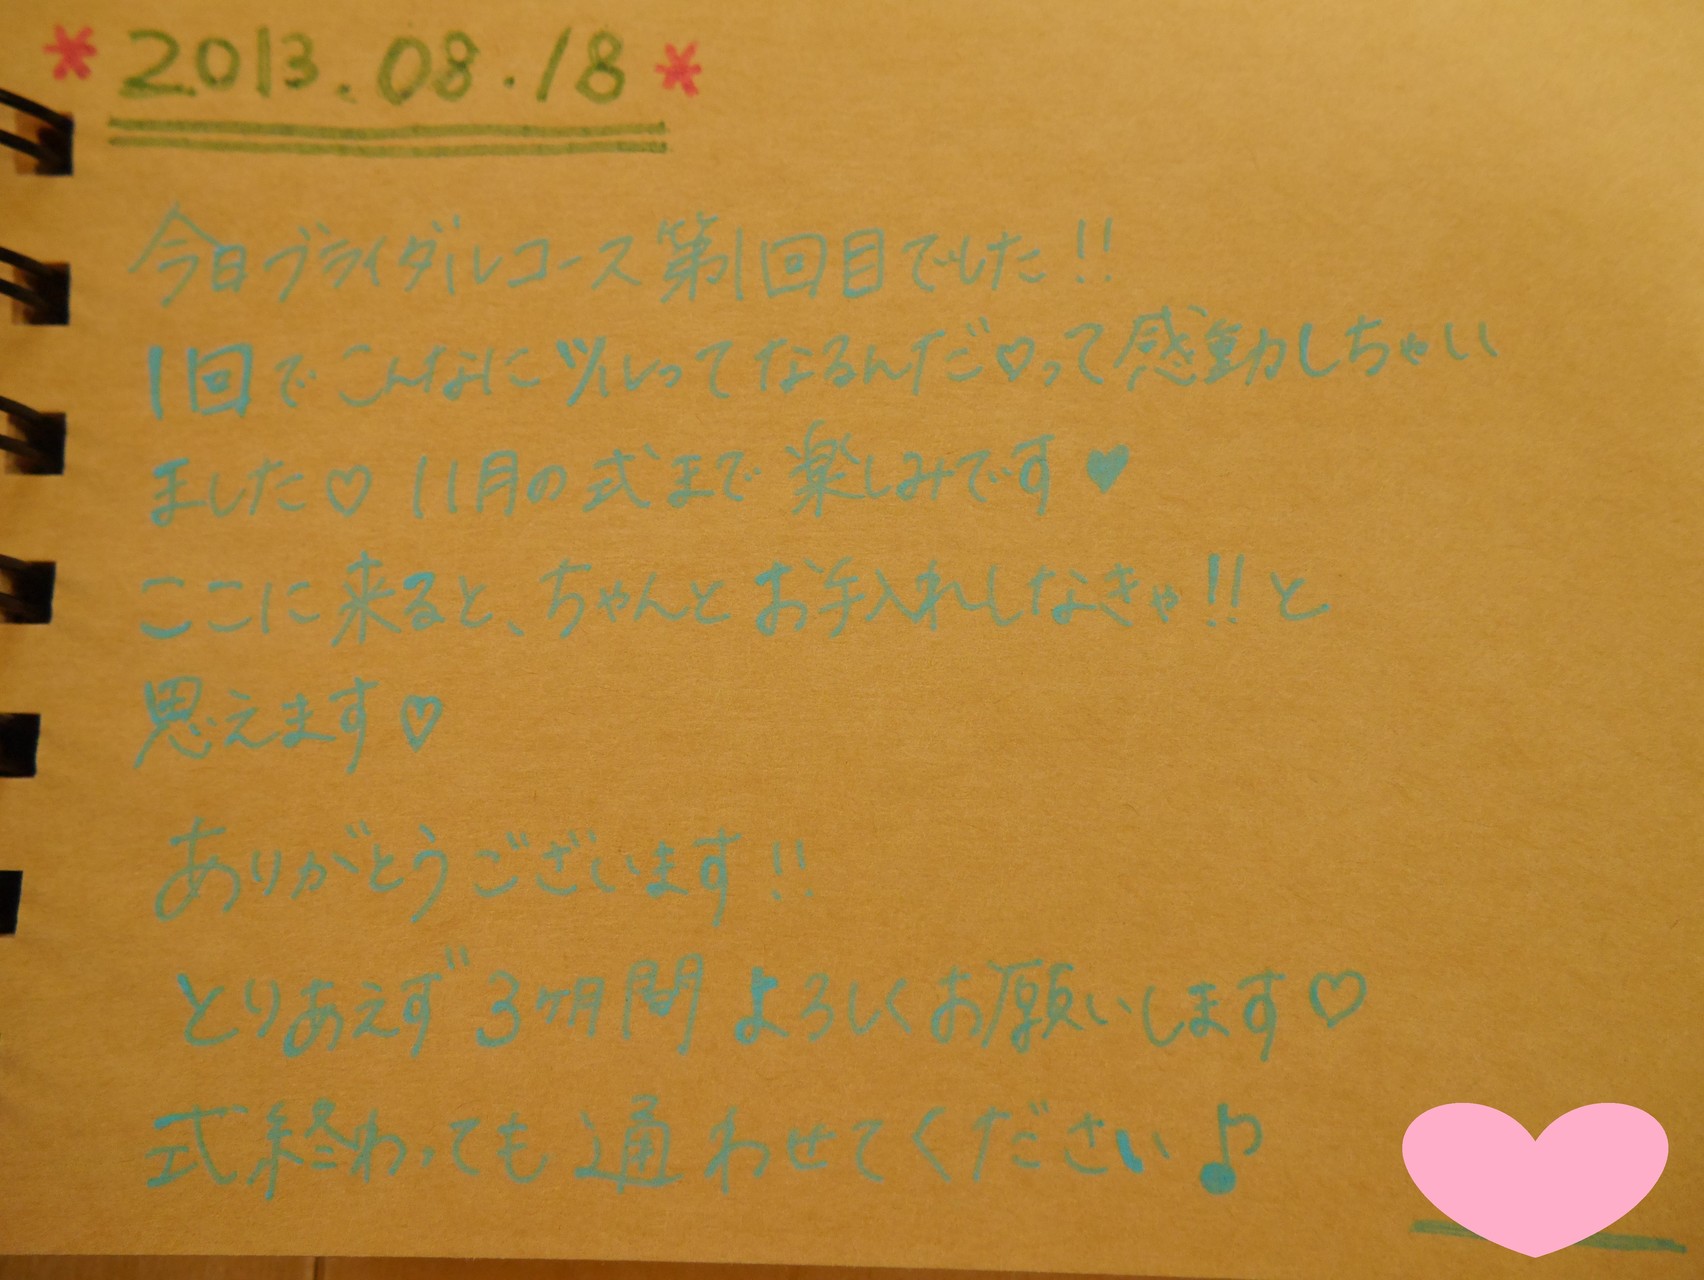 *2013.08.18*
今日ブライダルコース第1回目でした!!
1回でこんなにツルってなるんだ♡って感動しちゃい
ました♡ 11月の式まで楽しみです♥
ここに来ると、ちゃんとお手入れしなきゃ!!と
思えます♡
ありがとうございます!!
とりあえず3ヶ月間よろしくお願いします♡
式終わっても通わせてください♪